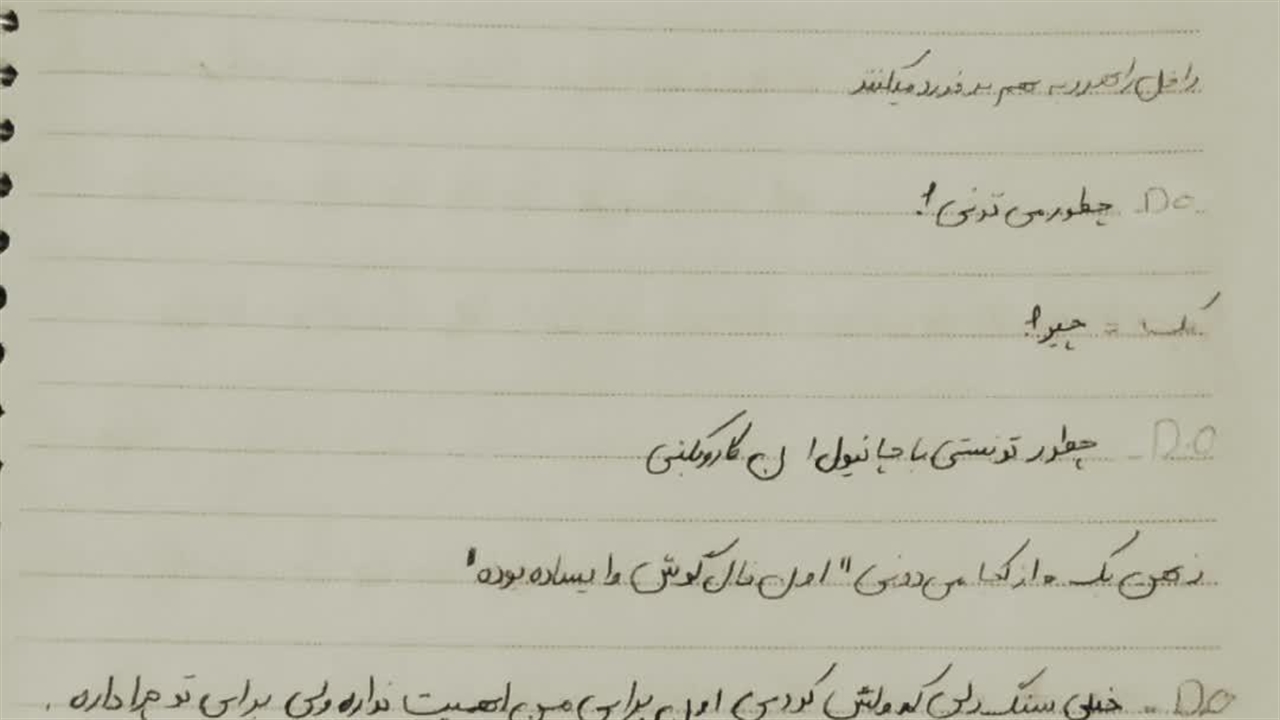 داخل راهرو به هم برخورد میکنند
D.O - چطور می تونی؟!
بک = چیرا؟!
D.O - چطور تونستی با چانیول اون کارو بکنی
ذهن بک = از کجا می دونی " اون فال گوش وایساده بوده "
D.O - خیلی سنگ دلی که ولش کردی اون برای من اهمیت نداره ولی برای تو چرا داره .